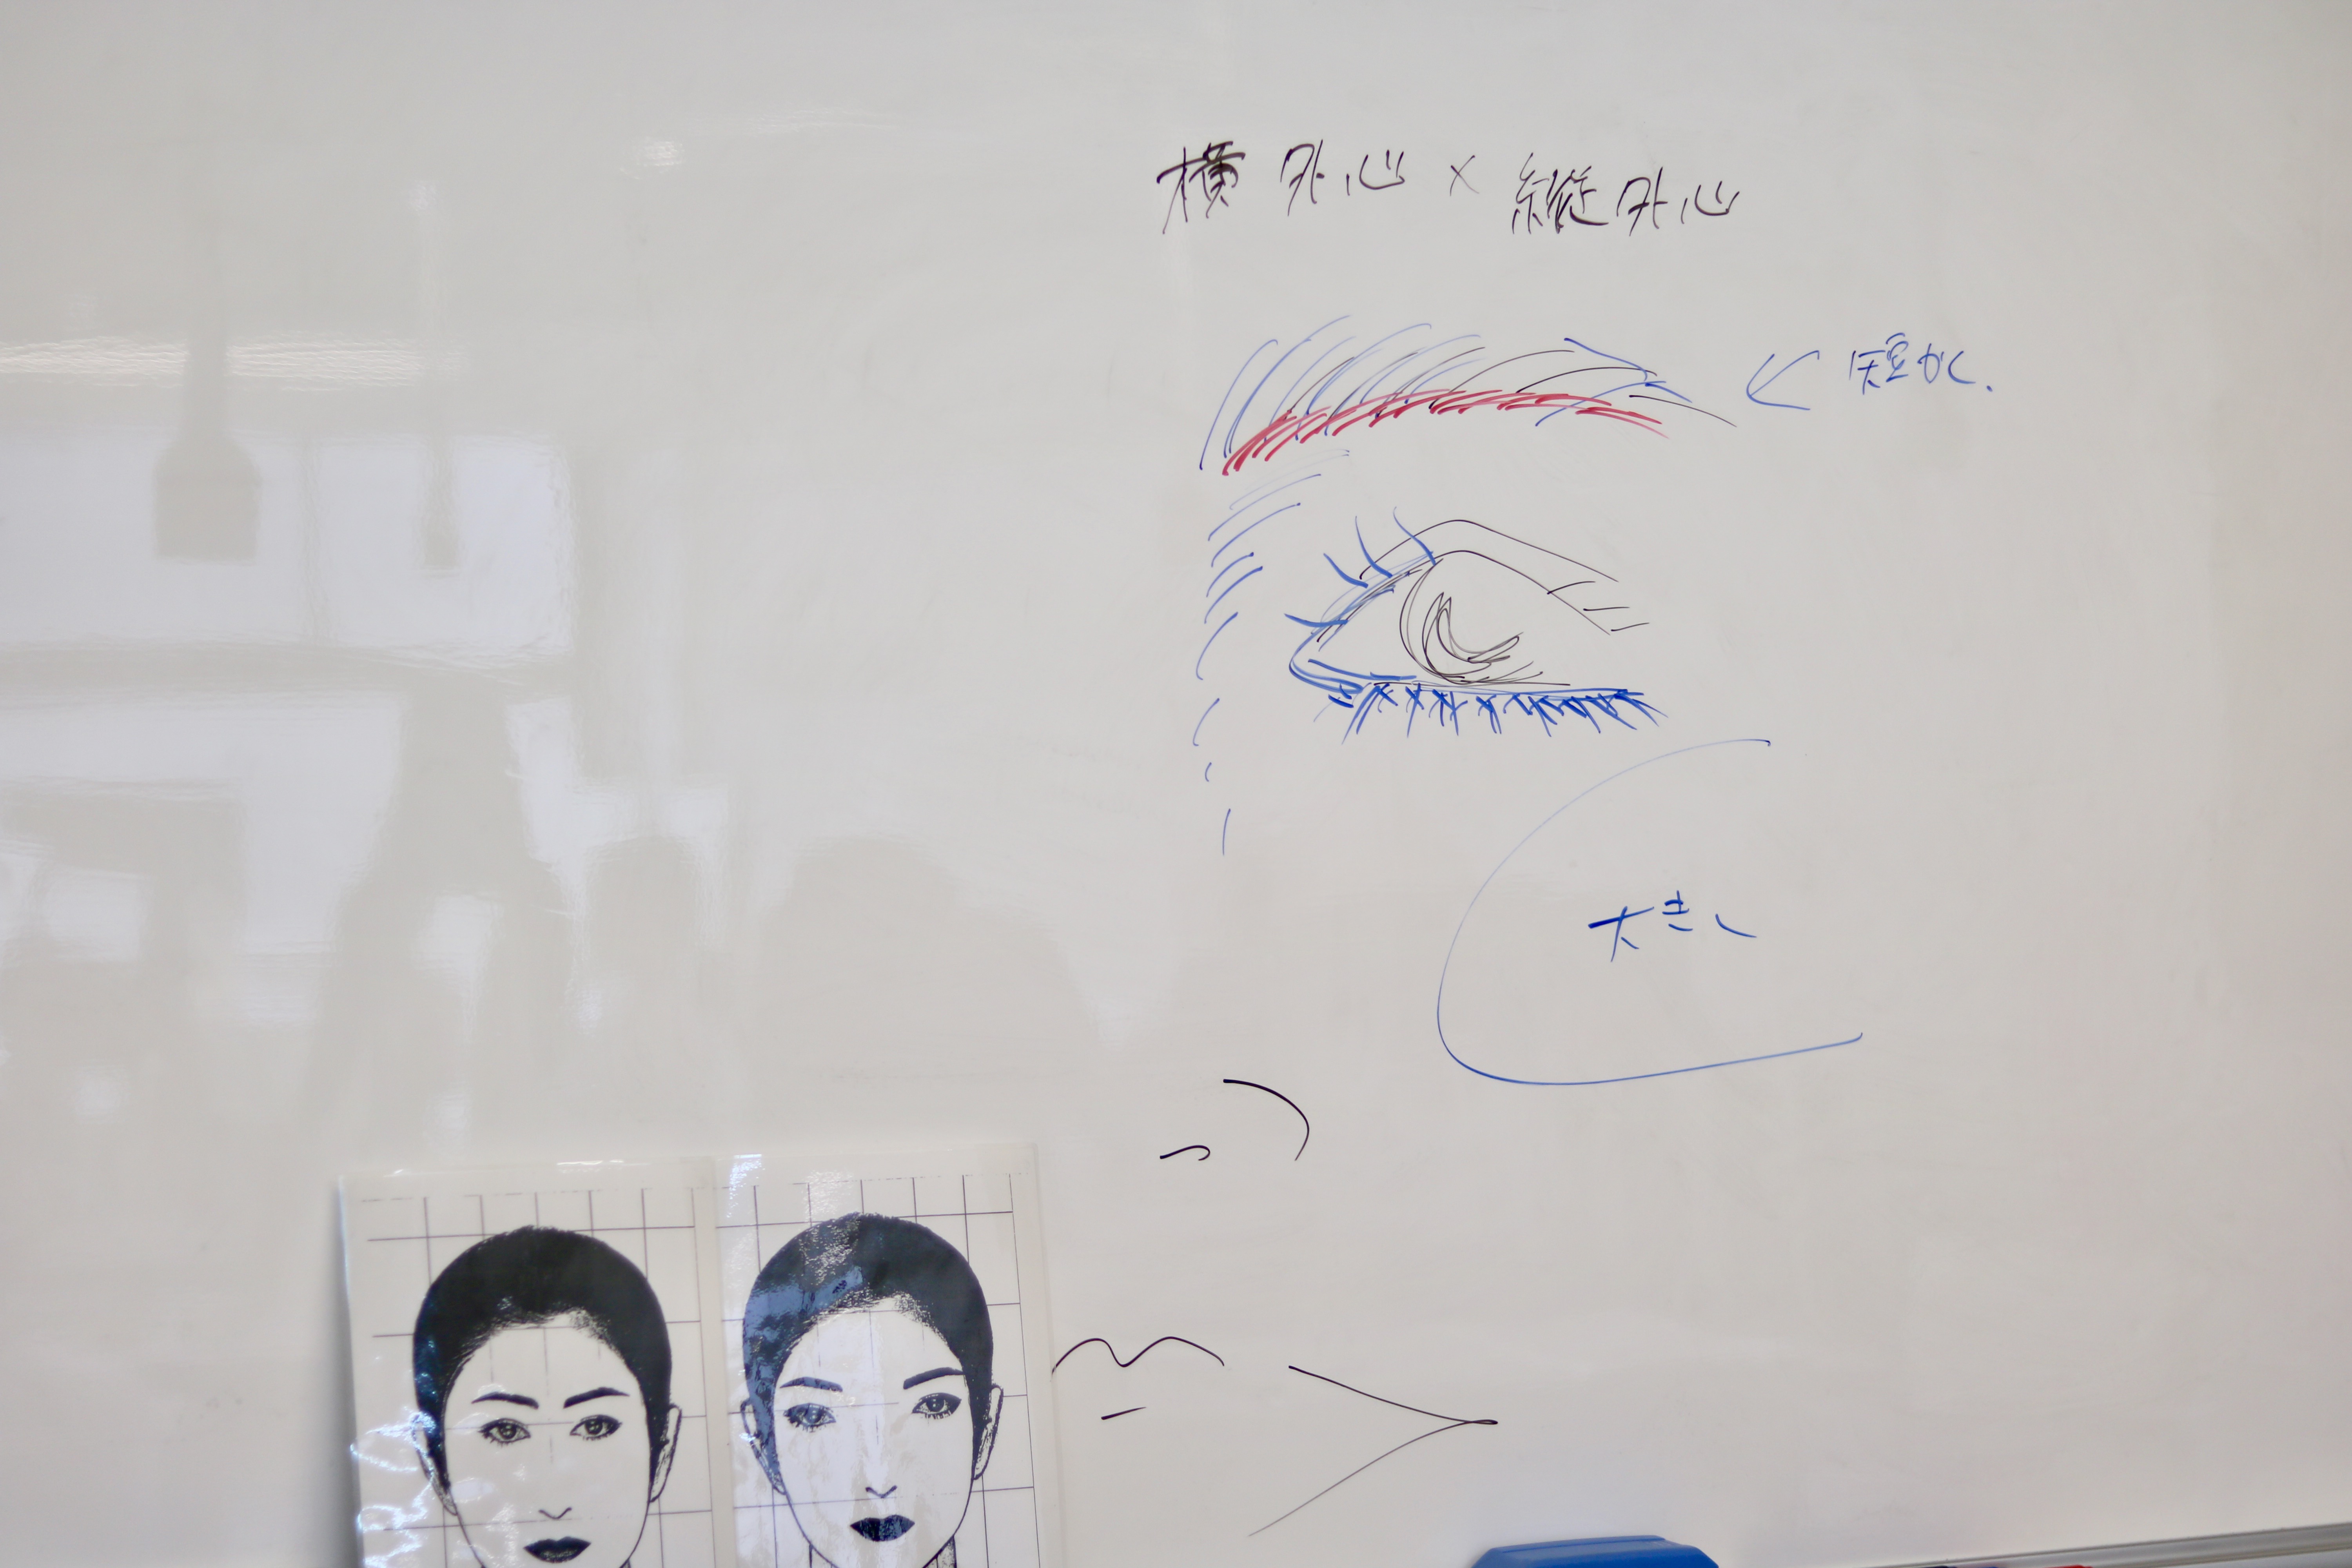 横外心×縦外心
短かく.
大きく